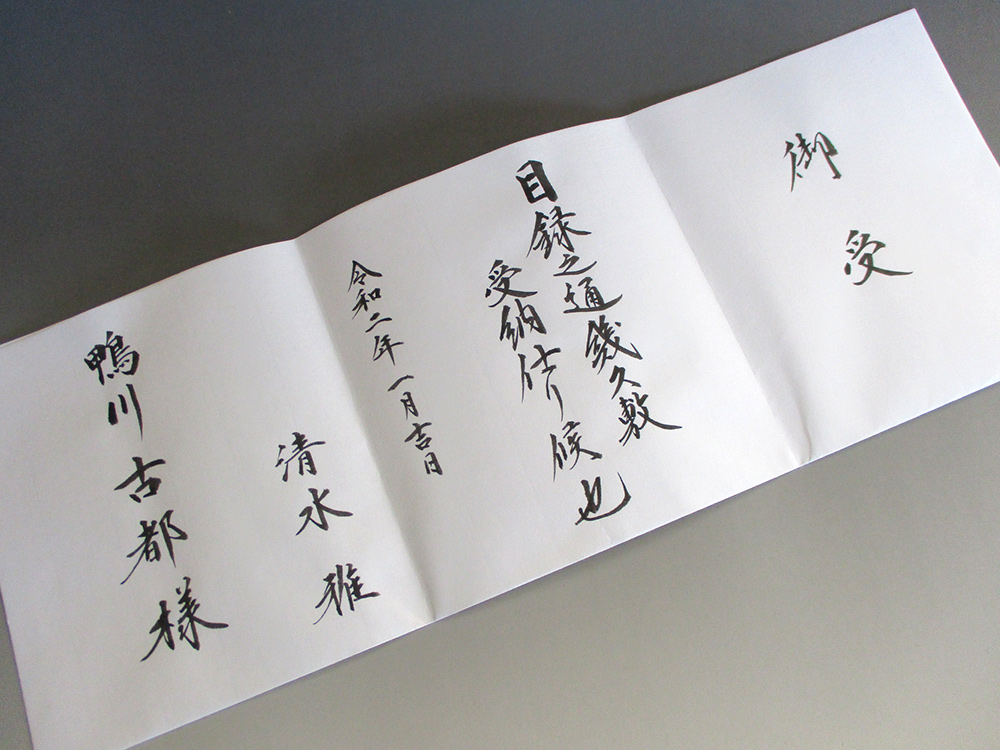 御受
目録之通幾久敷
受納仕り候也
令和二年一月吉日
清水雅
鴨川古都様